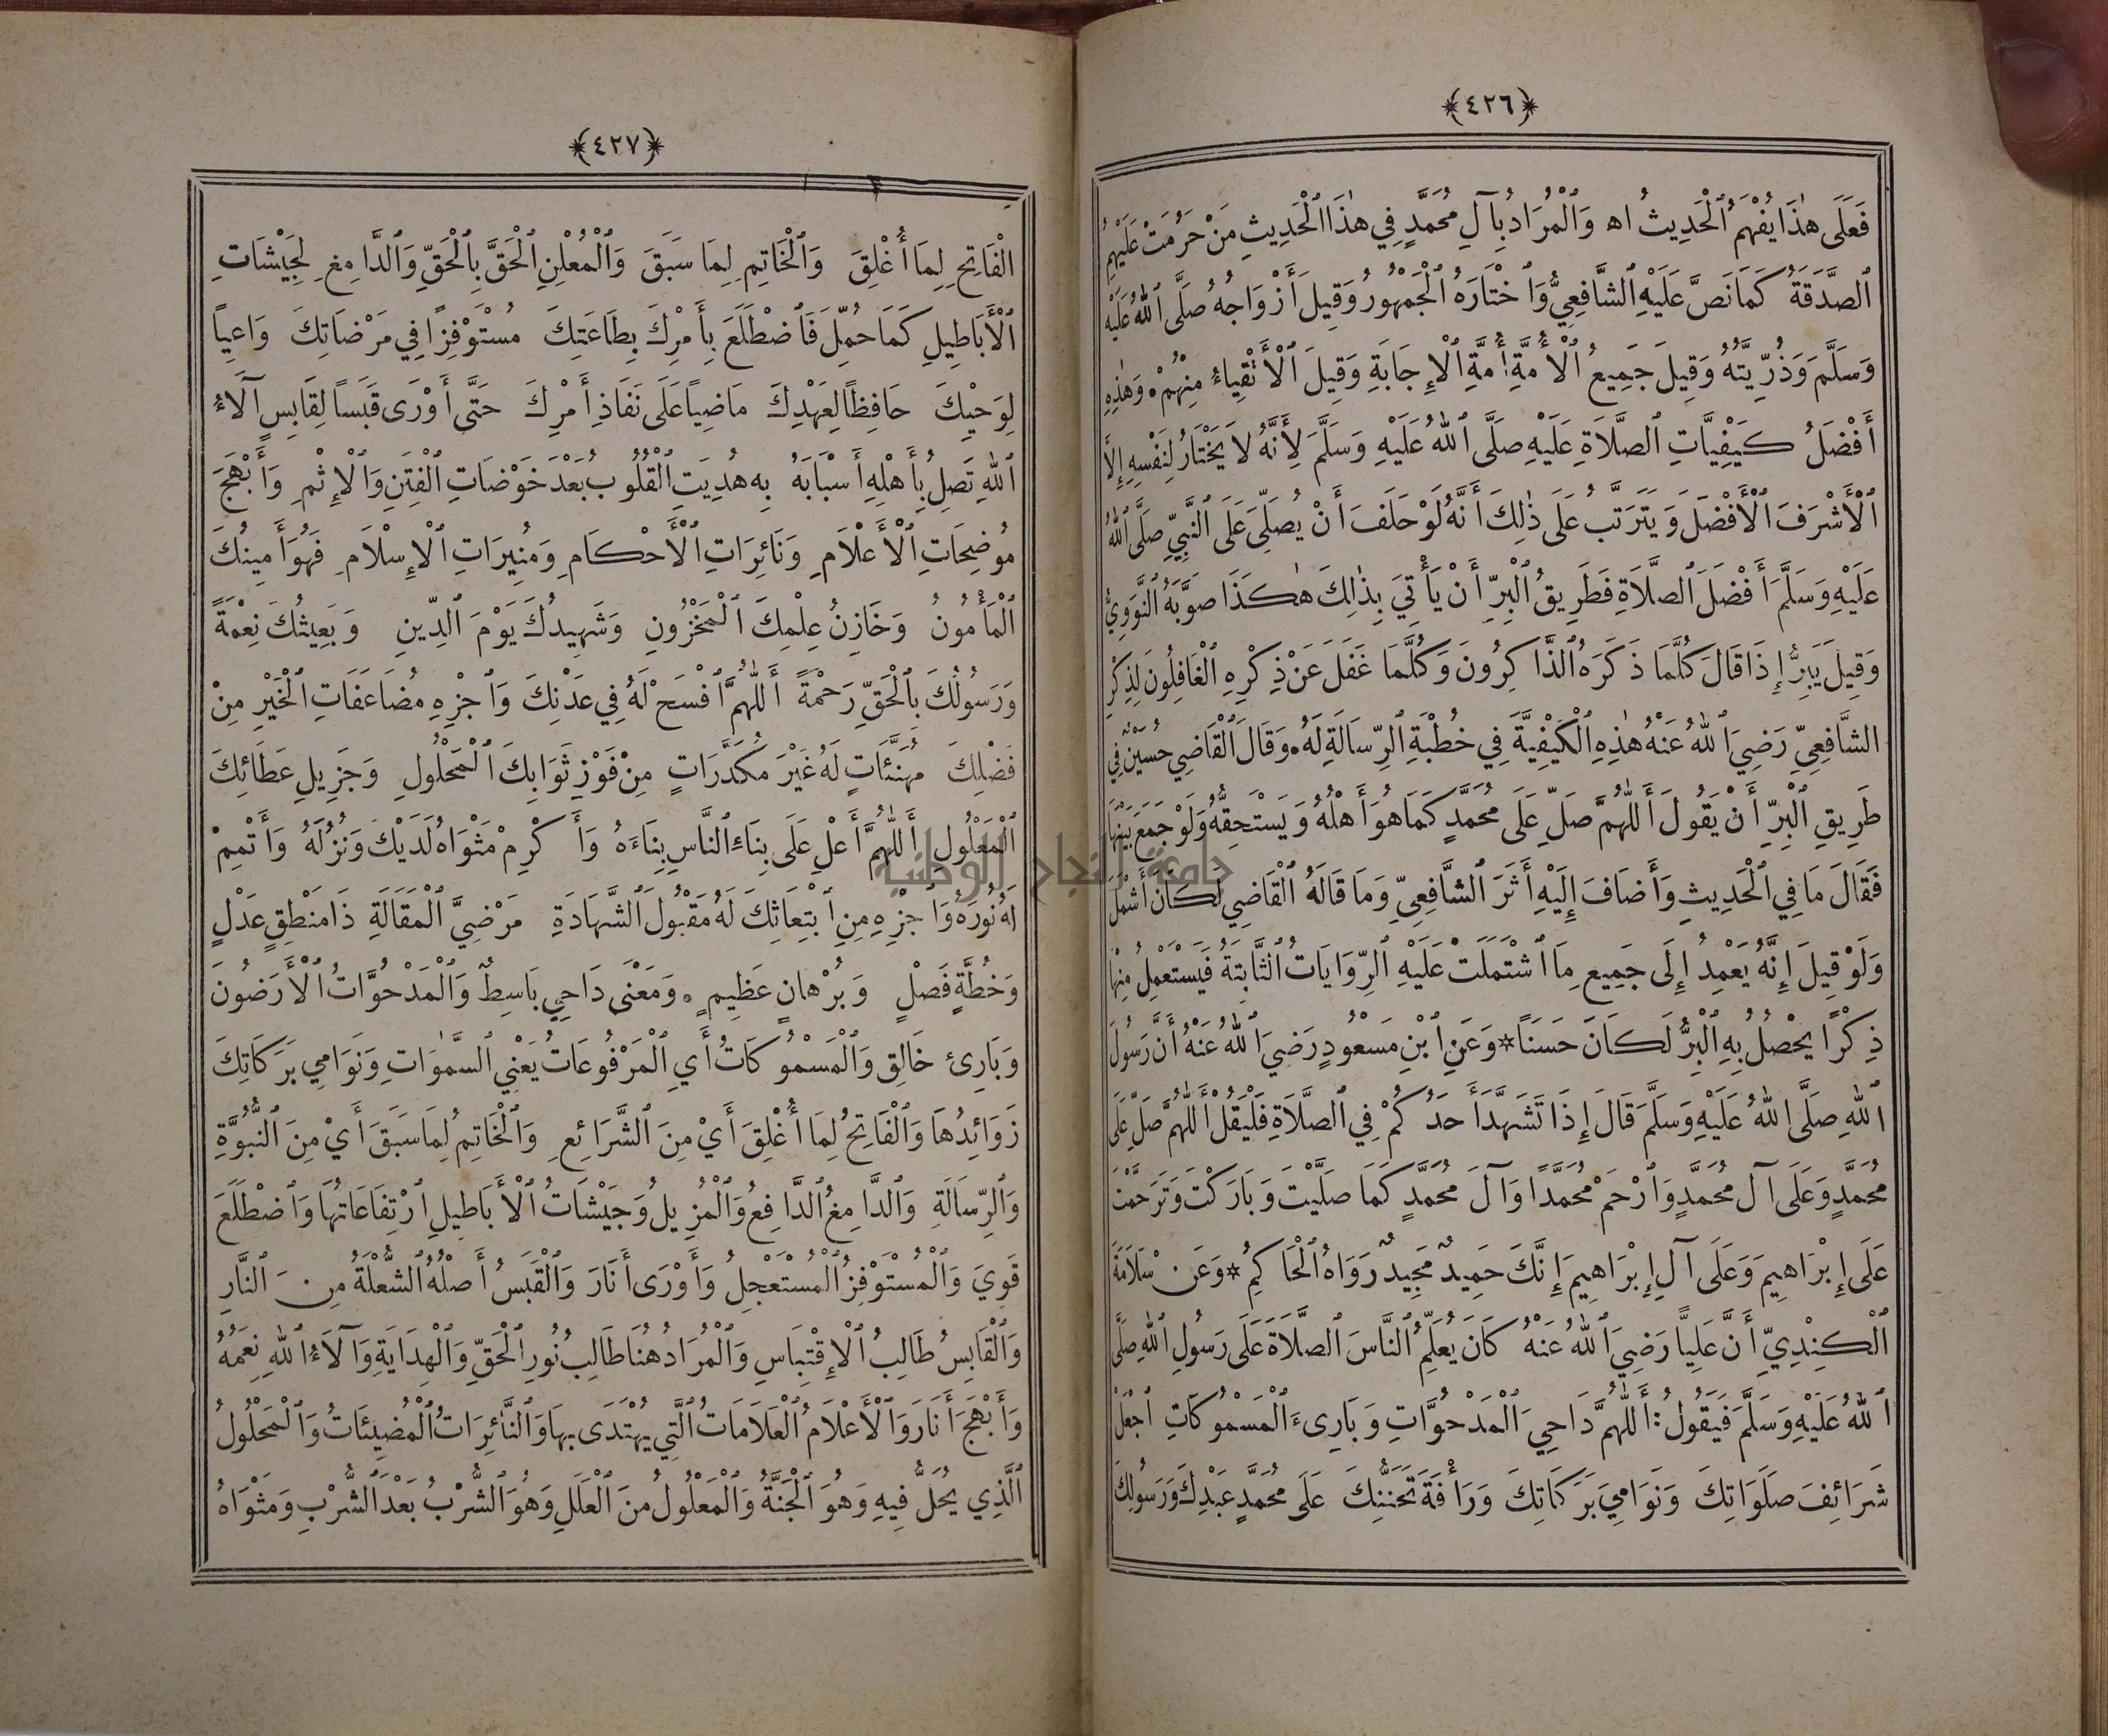 ﴿٤٢٦﴾
فَعَلَى هٰذَا يُفْهَمُ ٱلْحَدِيثُ اه وَٱلْمُرَادُ بِآلِ مُحَمَّدٍ فِي هٰذَا ٱلْحَدِيثِ مَنْ حَرُمَتْ عَلَيْهِمُ
ٱلصَّدَقَةُ كَمَا نَصَّ عَلَيْهِ ٱلشَّافِعِيُّ وَٱخْتَارَهُ ٱلْجَمْهُورُ وَقِيلَ أَزْوَاجُهُ صَلَّى ٱللهُ عَلَيْهِ
وَسَلَّمَ وَذُرِّيَّتُهُ وَقِيلَ جَمِيعُ ٱلْأُمَّةِ أُمَّةِ ٱلْإِجَابَةِ وَقِيلَ ٱلْأَتْقِيَاءُ مِنْهُمْ ۰ وَهٰذِهِ
أَفْضَلُ كَيْفِيَّاتِ ٱلصَّلَاةِ عَلَيْهِ صَلَّى ٱللهُ عَلَيْهِ وَسَلَّمَ لِأَنَّهُ لَا يَخْتَارُ لِنَفْسِهِ إِلَّا
ٱلْأَشْرَفَ ٱلْأَفْضَلَ وَيَتَرَتَّبُ عَلَى ذٰلِكَ أَنَّهُ لَوْ حَلَفَ أَنْ يُصَلِّيَ عَلَى ٱلنَّبِيِّ صَلَّى ٱللهُ
عَلَيْهِ وَسَلَّمَ أَفْضَلَ ٱلصَّلَاةِ فَطَرِيقُ ٱلْبِرِّ أَنْ يَأْتِيَ بِذٰلِكَ هٰكَذَا صَوَّبَهُ ٱلنَّوَوِيُّ
وَقِيلَ يَبَرُّ إِذَا قَالَ كُلَّمَا ذَكَرَهُ ٱلذَّاكِرُونَ وَكُلَّمَا غَفَلَ عَنْ ذِكْرِهِ ٱلْغَافِلُونَ لِذِكْرِ
الشَّافِعِيِّ رَضِيَ ٱللهُ عَنْهُ هٰذِهِ ٱلْكَيْفِيَّةَ فِي خُطْبَةِ ٱلرِّسَالَةِ لَهُ ۰ وَقَالَ ٱلْقَاضِي حُسَيْنٌ فِي
طَرِيقِ ٱلْبِرِّ أَنْ يَقُولَ أَللّٰهُمَّ صَلِّ عَلَى مُحَمَّدٍ كَمَا هُوَ أَهْلُهُ وَيَسْتَحِقُّهُ وَلَوْ جَمَعَ بَيْنَهَا
فَقَالَ مَا فِي ٱلْحَدِيثِ وَأَضَافَ إِلَيْهِ أَثَرَ ٱلشَّافِعِيِّ وَمَا قَالَهُ ٱلْقَاضِي لَكَانَ أَشْمَلَ
وَلَوْ قِيلَ إِنَّهُ يَعْمِدُ إِلَى جَمِيعِ مَا ٱشْتَمَلَتْ عَلَيْهِ ٱلرِّوَايَاتُ ٱلثَّابِتَةُ فَيَسْتَعْمِلُ مِنْهَا
ذِكْرًا يَحْصُلُ بِهِ ٱلْبِرُّ لَكَانَ حَسَنًا * وَعَنِ ٱبْنِ مَسْعُودٍ رَضِيَ ٱللهُ عَنْهُ أَنَّ رَسُولَ
ٱللهِ صَلَّى ٱللهُ عَلَيْهِ وَسَلَّمَ قَالَ إِذَا تَشَهَّدَ أَحَدُكُمْ فِي ٱلصَّلَاةِ فَلْيَقُلْ أَللّٰهُمَّ صَلِّ عَلَى
مُحَمَّدٍ وَعَلَى آلِ مُحَمَّدٍ وَٱرْحَمْ مُحَمَّدًا وَآلَ مُحَمَّدٍ كَمَا صَلَّيْتَ وَبَارَكْتَ وَتَرَحَّمْتَ
عَلَى إِبْرَاهِيمَ وَعَلَى آلِ إِبْرَاهِيمَ إِنَّكَ حَمِيدٌ مَجِيدٌ رَوَاهُ ٱلْحَاكِمُ * وَعَنْ سَلَامَةَ
ٱلْكِنْدِيِّ أَنَّ عَلِيًّا رَضِيَ ٱللهُ عَنْهُ كَانَ يُعَلِّمُ ٱلنَّاسَ ٱلصَّلَاةَ عَلَى رَسُولِ ٱللهِ صَلَّى
ٱللهُ عَلَيْهِ وَسَلَّمَ فَيَقُولُ : أَللّٰهُمَّ دَاحِيَ ٱلْمَدْحُوَّاتِ وَبَارِىءَ ٱلْمَسْمُوكَاتِ ٱجْعَلْ
شَرَائِفَ صَلَوَاتِكَ وَنَوَامِيَ بَرَكَاتِكَ وَرَأْفَةَ تَحَنُّنِكَ عَلَى مُحَمَّدٍ عَبْدِكَ وَرَسُولِكَ
﴿٤٢٧﴾
الْفَاتِحِ لِمَا أُغْلِقَ وَٱلْخَاتِمِ لِمَا سَبَقَ وَٱلْمُعْلِنِ ٱلْحَقَّ بِٱلْحَقِّ وَٱلدَّامِغِ لِجَيْشَاتِ
ٱلْأَبَاطِيلِ كَمَا حُمِّلَ فَٱضْطَلَعَ بِأَمْرِكَ بِطَاعَتِكَ مُسْتَوْفِزًا فِي مَرْضَاتِكَ وَاعِيًا
لِوَحْيِكَ حَافِظًا لِعَهْدِكَ مَاضِيًا عَلَى نَفَاذِ أَمْرِكَ حَتَّى أَوْرَى قَبَسًا لِقَابِسٍ آلَاءُ
ٱللهِ تَصِلُ بِأَهْلِهِ أَسْبَابَهُ بِهِ هُدِيَتِ ٱلْقُلُوبُ بَعْدَ خَوْضَاتِ ٱلْفِتَنِ وَٱلْإِثْمِ وَأَبْهَجَ
مُوضِحَاتِ ٱلْأَعْلَامِ وَنَائِرَاتِ ٱلْأَحْكَامِ وَمُنِيرَاتِ ٱلْإِسْلَامِ فَهُوَ أَمِينُكَ
ٱلْمَأْمُونُ وَخَازِنُ عِلْمِكَ ٱلْمَخْزُونِ وَشَهِيدُكَ يَوْمَ ٱلدِّينِ وَبَعِيثُكَ نِعْمَةً
وَرَسُولُكَ بِٱلْحَقِّ رَحْمَةً أَللّٰهُمَّ ٱفْسَحْ لَهُ فِي عَدْنِكَ وَٱجْزِهِ مُضَاعَفَاتِ ٱلْخَيْرِ مِنْ
فَضْلِكَ مُهَنَّئَاتٍ لَهُ غَيْرَ مُكَدَّرَاتٍ مِنْ فَوْزِ ثَوَابِكَ ٱلْمَحْلُولِ وَجَزِيلِ عَطَائِكَ
ٱلْمَعْلُولِ أَللّٰهُمَّ أَعْلِ عَلَى بِنَاءِ ٱلنَّاسِ بِنَاءَهُ وَأَكْرِمْ مَثْوَاهُ لَدَيْكَ وَنُزُلَهُ وَأَتْمِمْ
لَهُ نُورَهُ وَٱجْزِهِ مِنِ ٱبْتِعَاثِكَ لَهُ مَقْبُولَ ٱلشَّهَادَةِ مَرْضِيَّ ٱلْمَقَالَةِ ذَا مَنْطِقٍ عَدْلٍ
وَخُطَّةٍ فَصْلٍ وَبُرْهَانٍ عَظِيمٍ ۰ وَمَعْنَى دَاحِي بَاسِطٌ وَٱلْمَدْحُوَّاتُ ٱلْأَرَضُونَ
وَبَارِئ خَالِق وَٱلْمَسْمُوكَاتُ أَيِ ٱلْمَرْفُوعَاتُ يَعْنِي ٱلسَّمٰوَاتِ وَنَوَامِي بَرَكَاتِكَ
زَوَائِدُهَا وَٱلْفَاتِحُ لِمَا أُغْلِقَ أَيْ مِنَ ٱلشَّرَائِعِ وَٱلْخَاتِمُ لِمَا سَبَقَ أَيْ مِنَ ٱلنُّبُوَّةِ
وَٱلرِّسَالَةِ وَٱلدَّامِغُ ٱلدَّافِعُ وَٱلْمُزِيلُ وَجَيْشَاتُ ٱلْأَبَاطِيلِ ٱرْتِفَاعَاتُهَا وَٱضْطَلَعَ
قَوِيَ وَٱلْمُسْتَوْفِزُ ٱلْمُسْتَعْجِلُ وَأَوْرَى أَنَارَ وَٱلْقَبَسُ أَصْلُهُ ٱلشُّعْلَةُ مِنَ ٱلنَّارِ
وَٱلْقَابِسُ طَالِبُ ٱلْإِقْتِبَاسِ وَٱلْمُرَادُ هُنَا طَالِبُ نُورِ ٱلْحَقِّ وَٱلْهِدَايَةِ وَآلَاءُ ٱللهِ نِعَمُهُ
وَأَبْهَجَ أَنَارَ وَٱلْأَعْلَامُ ٱلْعَلَامَاتُ ٱلَّتِي يُهْتَدَى بِهَا وَٱلنَّائِرَاتُ ٱلْمُضِيئَاتُ وَٱلْمَحْلُولُ
ٱلَّذِي يُحَلُّ فِيهِ وَهُوَ ٱلْجَنَّةُ وَٱلْمَعْلُولُ مِنَ ٱلْعَلَلِ وَهُوَ ٱلشُّرْبُ بَعْدَ ٱلشُّرْبِ وَمَثْوَاهُ
جامعة النجاح الوطنية